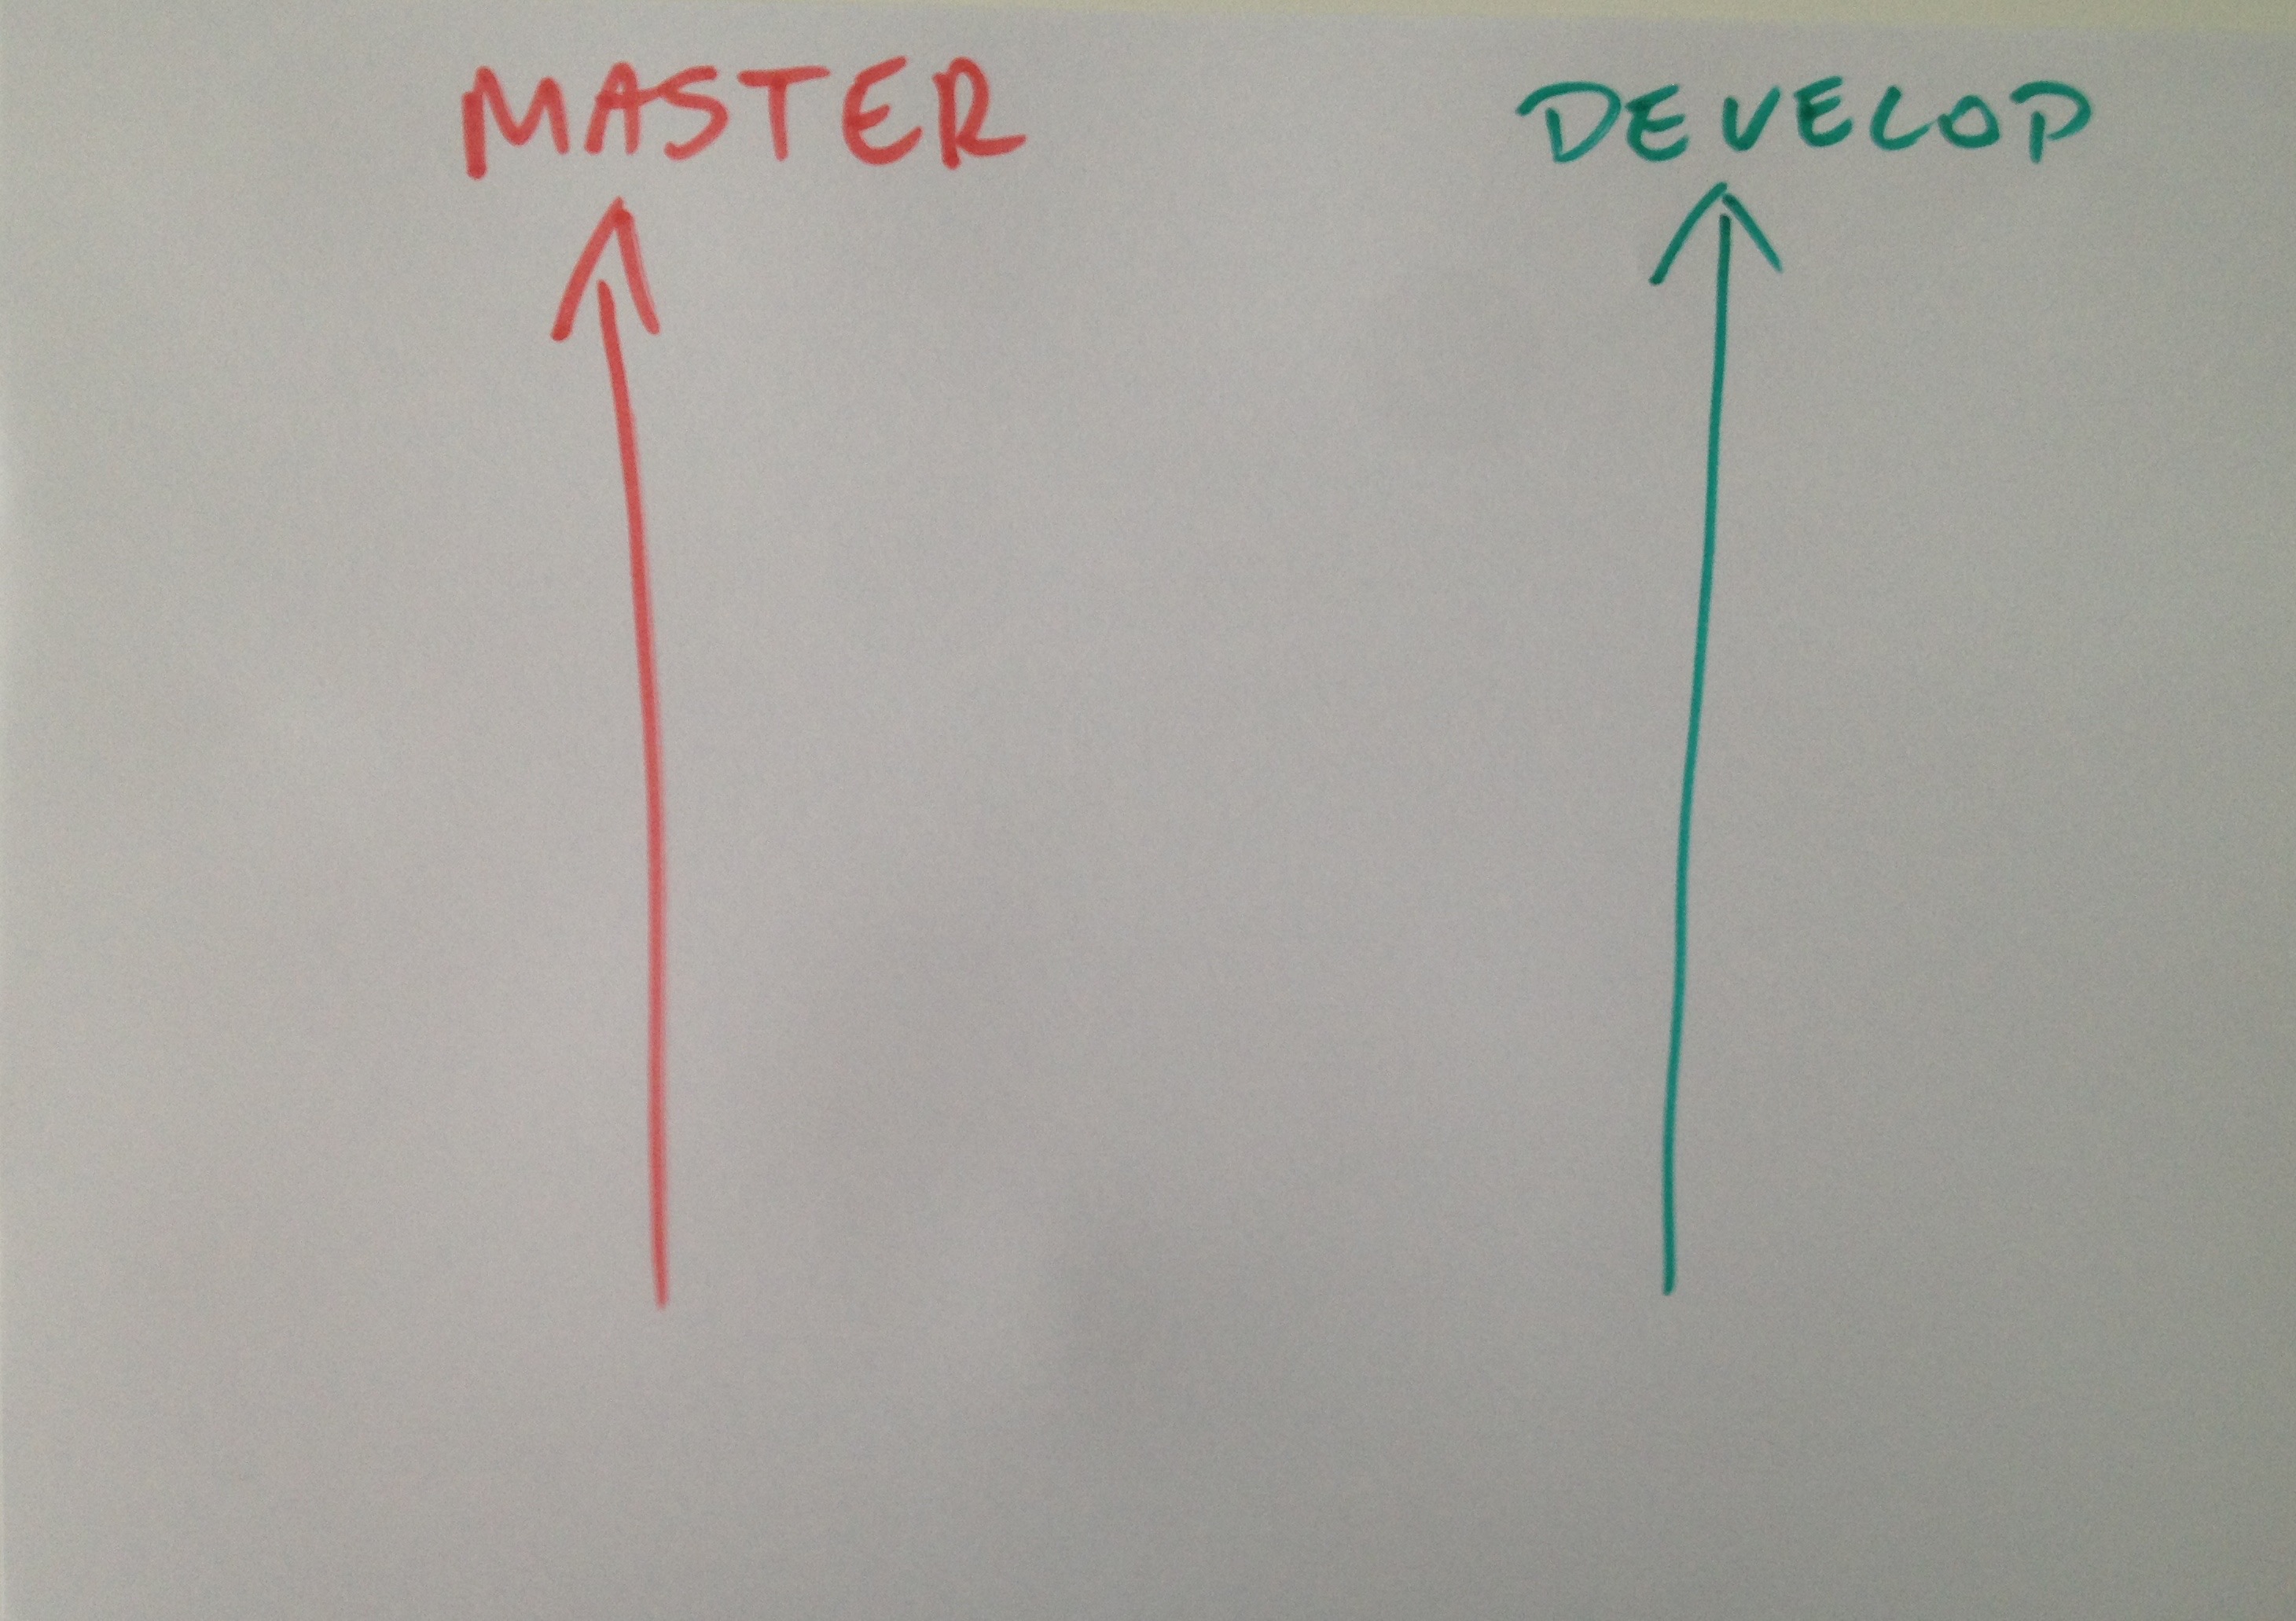 MASTER DEVELOP